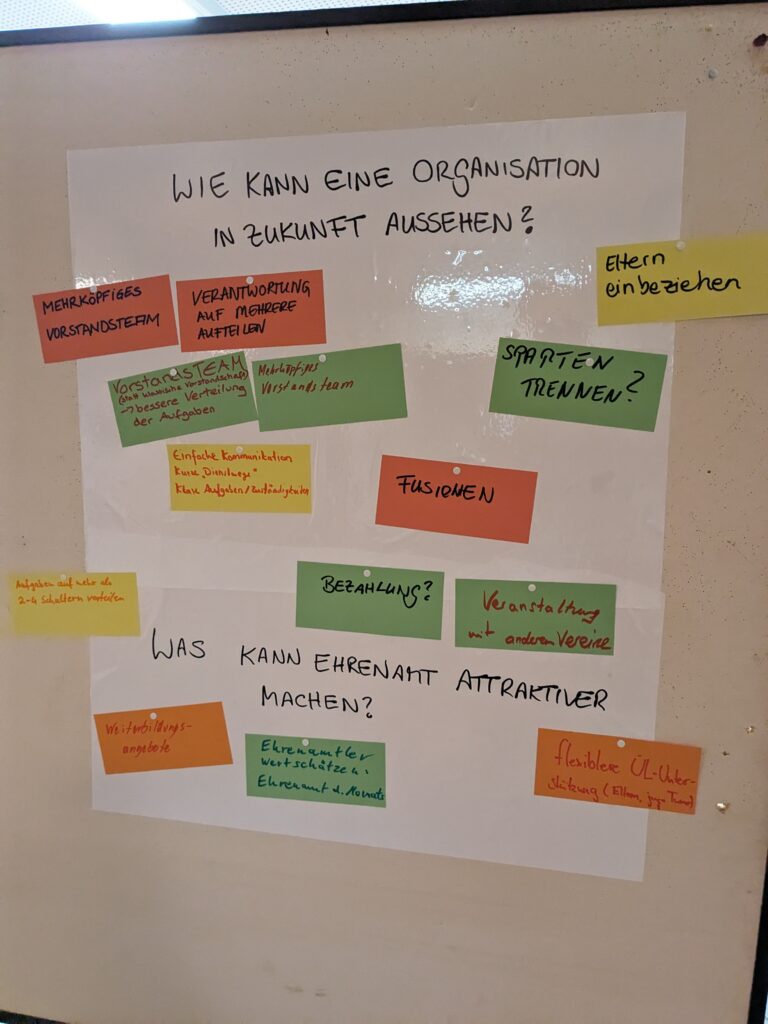 WIE KANN EINE ORGANISATION
IN ZUKUNFT AUSSEHEN?
Eltern
einbeziehen
MEHRKÖPFIGES
VORSTANDSTEAM
VERANTWORTUNG
AUF MEHRERE
AUFTEILEN
VorstandsTEAM
(statt klassische Vorstandschaft)
→ bessere Verteilung
der Aufgaben
Mehrköpfiges
Vorstandsteam
SPARTEN
TRENNEN?
Einfache Kommunikation
Kurze "Dienstwege"
Klare Aufgaben/Zuständigkeiten
FUSIONEN
Aufgaben auf mehr als
2-4 Schultern verteilen
BEZAHLUNG?
Veranstaltung
mit anderem Vereine
WAS KANN EHRENAMT ATTRAKTIVER
MACHEN?
Weiterbildungs-
angebote
Ehrenamtler
wertschätzen:
Ehrenamt d. Monats
flexiblere ÜL-Unter-
stützung (Eltern,